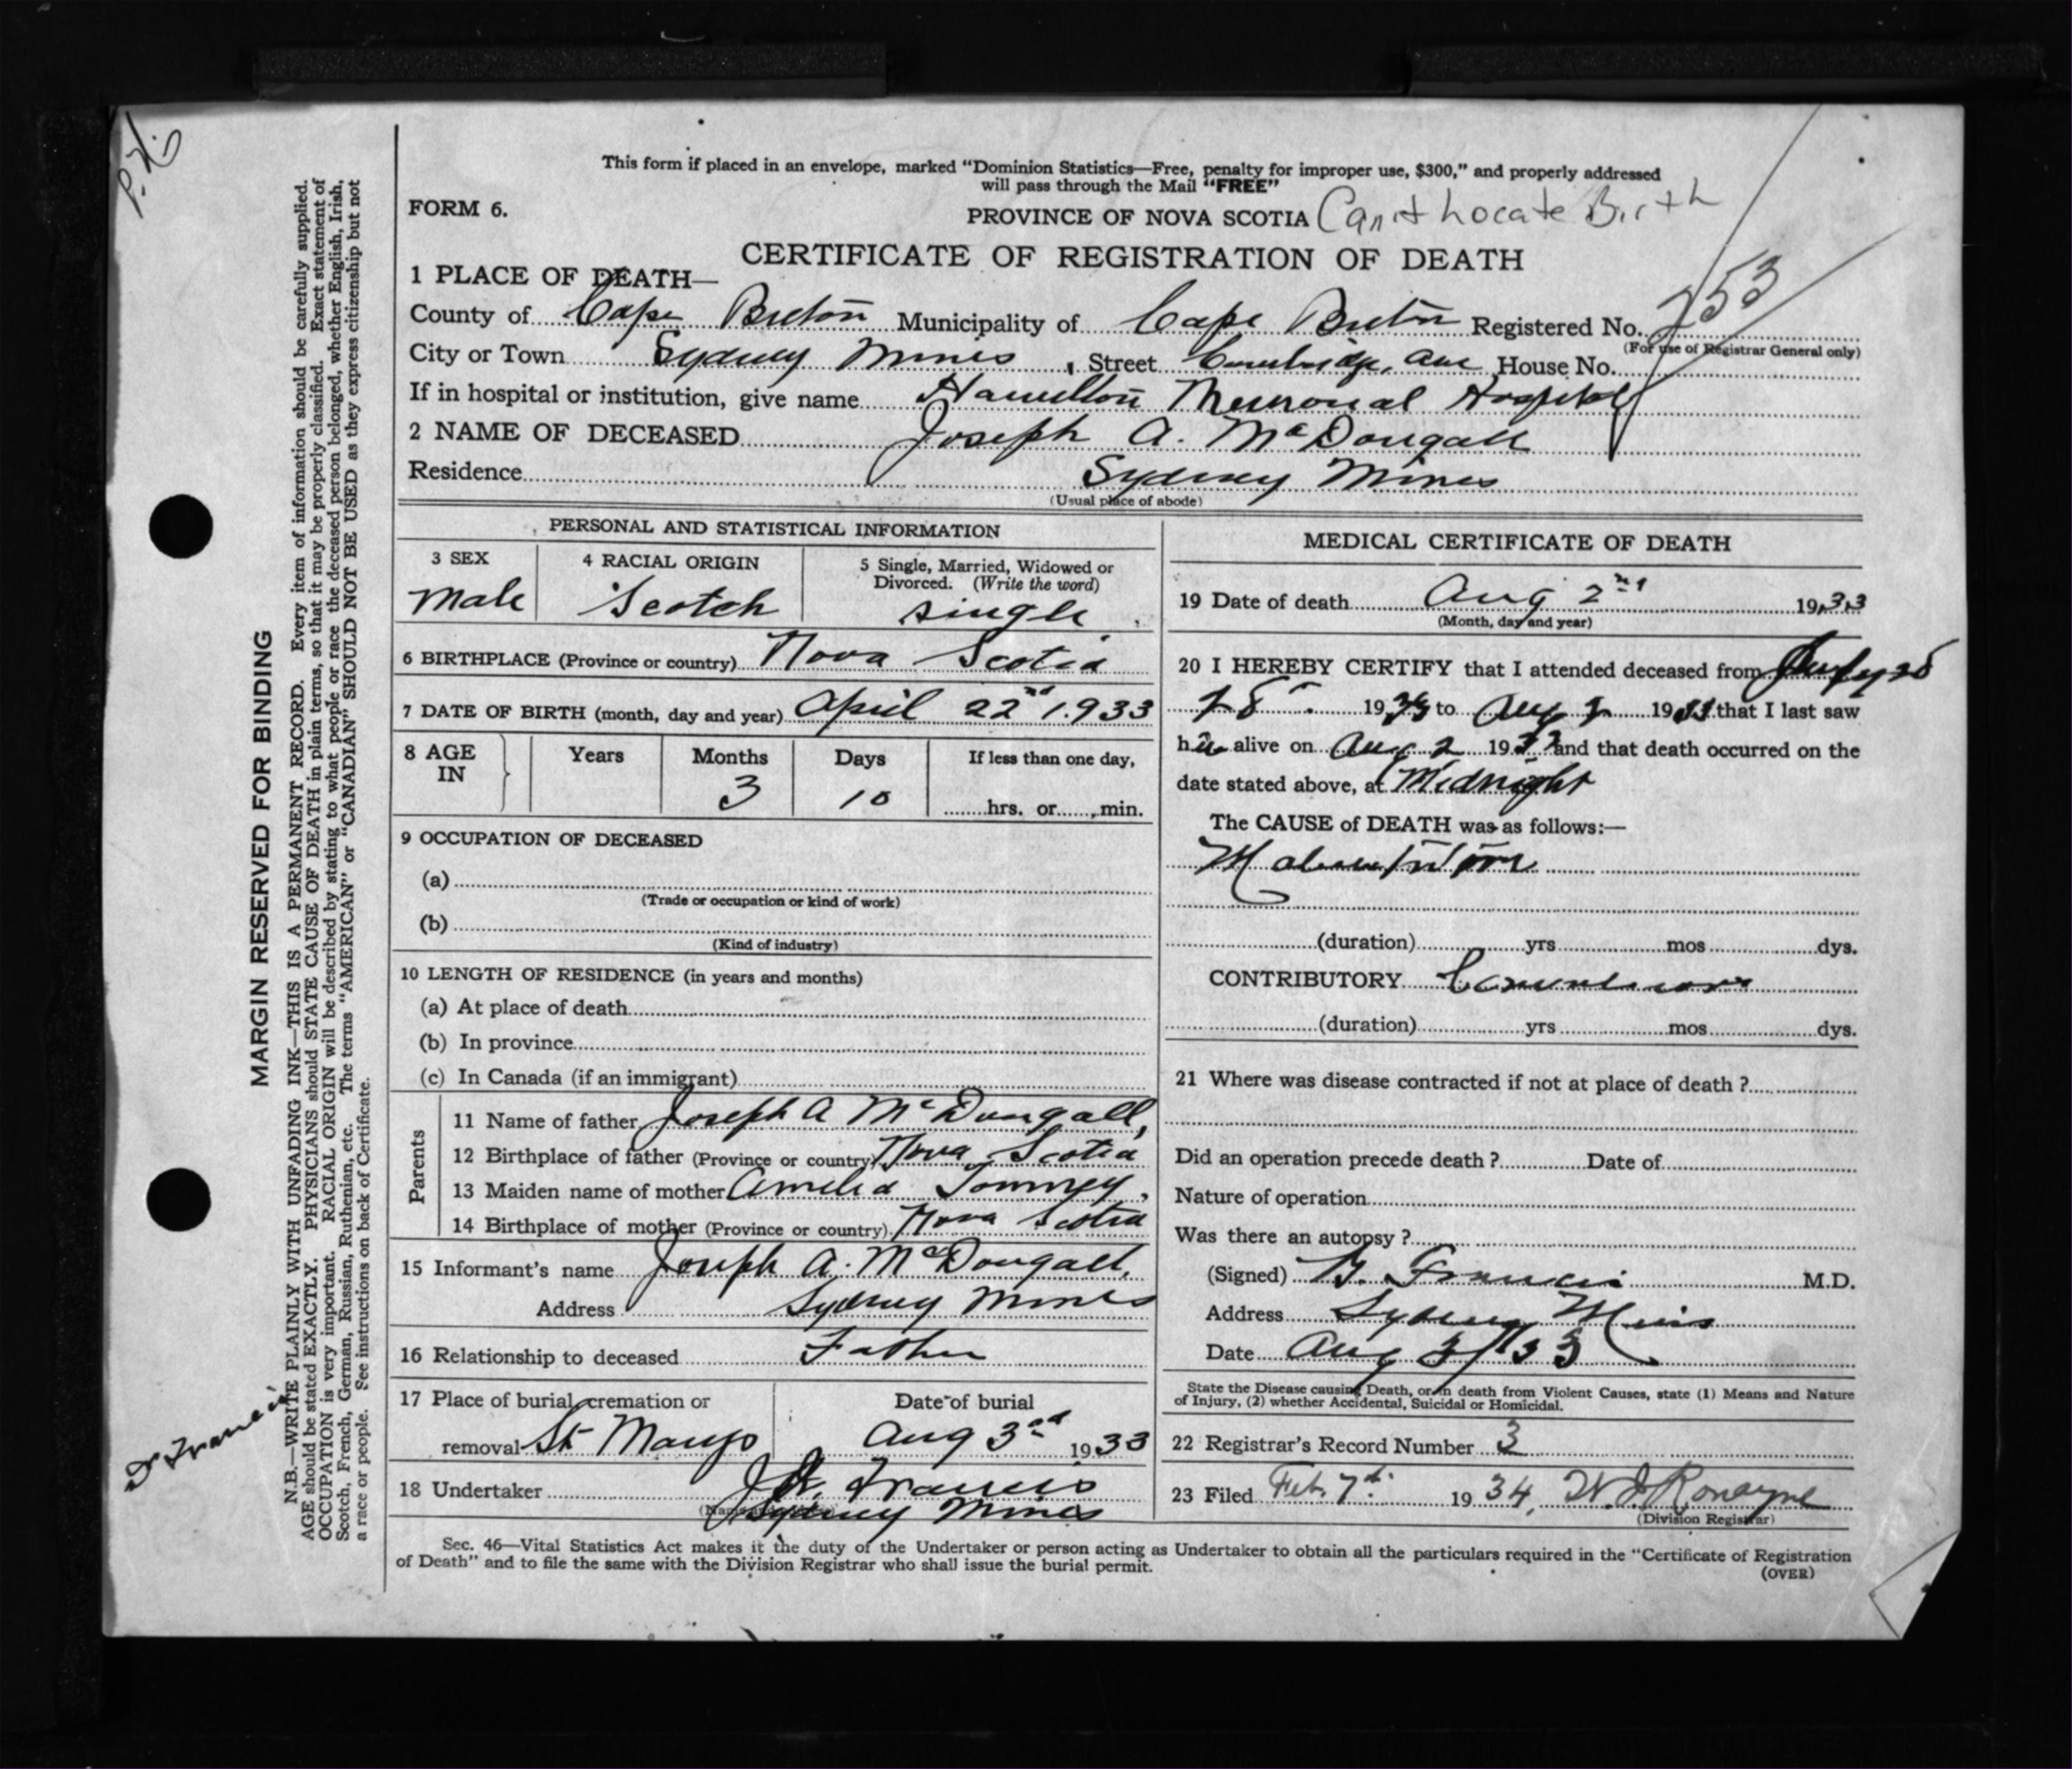 P.H.
This form if placed in an envelope, marked "Dominion Statistics—Free, penalty for improper use, $300," and properly addressed
will pass through the Mail "FREE"
FORM 6.
PROVINCE OF NOVA SCOTIA Can't Locate Birth
CERTIFICATE OF REGISTRATION OF DEATH
1 PLACE OF DEATH—
County of Cape Breton Municipality of Cape Breton Registered No. 253
(For use of Registrar General only)
City or Town Sydney Mines, Street Ave House No.
If in hospital or institution, give name Hamilton Memorial Hospital
2 NAME OF DECEASED Joseph A. McDougall
Residence Sydney Mines
(Usual place of abode)
PERSONAL AND STATISTICAL INFORMATION
3 SEX 4 RACIAL ORIGIN 5 Single, Married, Widowed or
Divorced. (Write the word)
Male Scotch single
6 BIRTHPLACE (Province or country) Nova Scotia
7 DATE OF BIRTH (month, day and year) April 22nd 1933
8 AGE IN Years Months Days If less than one day,
3 10 hrs. or min.
9 OCCUPATION OF DECEASED
(a)
(Trade or occupation or kind of work)
(b)
(Kind of industry)
10 LENGTH OF RESIDENCE (in years and months)
(a) At place of death
(b) In province
(c) In Canada (if an immigrant)
Parents
11 Name of father Joseph A McDougall,
12 Birthplace of father (Province or country) Nova Scotia
13 Maiden name of mother Amelia
14 Birthplace of mother (Province or country) Nova Scotia
15 Informant's name Joseph A. McDougall,
Address Sydney Mines
16 Relationship to deceased Father
17 Place of burial, cremation or Date of burial
removal St Marys Aug 3rd 1933
18 Undertaker Francis
Sydney Mines
MEDICAL CERTIFICATE OF DEATH
19 Date of death Aug 2nd 1933
(Month, day and year)
20 I HEREBY CERTIFY that I attended deceased from July 28
28 1933 to Aug 2 1933 that I last saw
him alive on Aug 2 1933 and that death occurred on the
date stated above, at Midnight
The CAUSE of DEATH was as follows:—
Malnutrition
(duration) yrs mos dys.
CONTRIBUTORY Convulsions
(duration) yrs mos dys.
21 Where was disease contracted if not at place of death?
Did an operation precede death? Date of
Nature of operation
Was there an autopsy?
(Signed) Francis M.D.
Address Sydney Mines
Date Aug 3/33
State the Disease causing Death, or in death from Violent Causes, state (1) Means and Nature
of Injury, (2) whether Accidental, Suicidal or Homicidal.
22 Registrar's Record Number 3
23 Filed Feb. 7th 1934, W. J. Ronayne
(Division Registrar)
Sec. 46—Vital Statistics Act makes it the duty of the Undertaker or person acting as Undertaker to obtain all the particulars required in the "Certificate of Registration
of Death" and to file the same with the Division Registrar who shall issue the burial permit.
(OVER)
MARGIN RESERVED FOR BINDING
N.B.—WRITE PLAINLY WITH UNFADING INK—THIS IS A PERMANENT RECORD. Every item of information should be carefully supplied.
AGE should be stated EXACTLY. PHYSICIANS should STATE CAUSE OF DEATH in plain terms, so that it may be properly classified. Exact statement of
OCCUPATION is very important. RACIAL ORIGIN will be described by stating to what people or race the deceased person belonged, whether English, Irish,
Scotch, French, German, Russian, Ruthenian, etc. The terms "AMERICAN" or "CANADIAN" SHOULD NOT BE USED as they express citizenship but not
a race or people. See instructions on back of Certificate.
Dr Francis